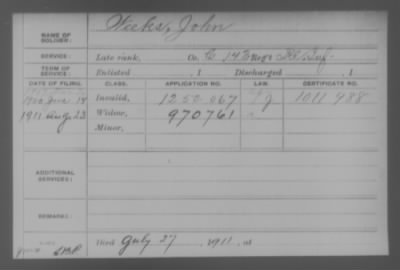 NAME OF SOLDIER: Weeks, John
SERVICE: Late rank, Co. C, 143 Reg't Ill Inf.
TERM OF SERVICE: Enlisted , 1 Discharged , 1
DATE OF FILING. CLASS. APPLICATION NO. LAW. CERTIFICATE NO.
1900 June 14 Invalid, 1250.067 1011.988
1911 Aug 23 Widow, 970.761
Minor,
ADDITIONAL SERVICES:
REMARKS:
Died July 27, 1911, at